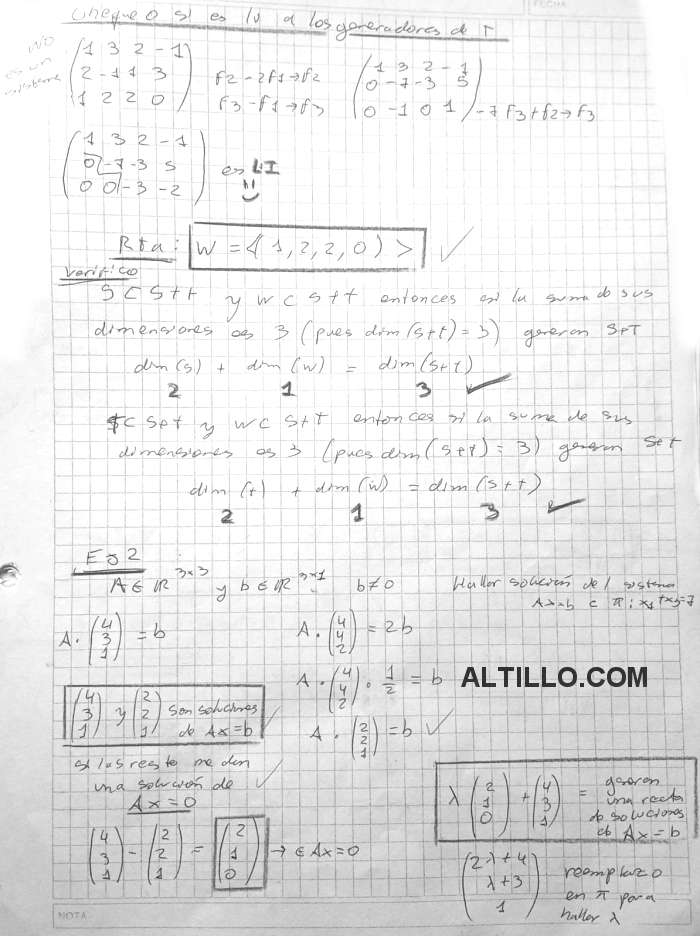 Chequeo si es li a los generadores de T
NO es un sistema
(1 3 2 -1)
(2 -1 1 3) F2 - 2F1 → F2
(1 2 2 0) F3 - F1 → F3
(1 3 2 -1)
(0 -7 -3 5)
(0 -1 0 1) -7F3 + F2 → F3
(1 3 2 -1)
(0 -7 -3 5) es LI
(0 0 -3 -2)
Rta: W = <(1, 2, 2, 0)> ✓
Verifico
S ⊂ S+t y W ⊂ S+t entonces si la suma de sus
dimensiones es 3 (pues dim(S+t) = 3) generan S+T
dim(s) + dim(w) = dim(s+t)
2 1 3 ✓
⊂ S+t y W ⊂ S+t entonces si la suma de sus
dimensiones es 3 (pues dim(S+t) = 3) generan S+t
dim(t) + dim(w) = dim(s+t)
2 1 3 ✓
Ej 2
A ∈ ℝ^3x3 y b ∈ ℝ^3x1 b ≠ 0 Hallar solución del sistema
Ax=b ⊂ π: x1+x3=7
A · (4 3 1) = b
A · (4 4 2) = 2b
A · (4 4 2) · 1/2 = b
A · (2 2 1) = b ✓
(4 3 1) y (2 2 1) son soluciones
de Ax=b ✓
si las resto me dan
una solución de ✓
Ax = 0
(4 3 1) - (2 2 1) = (2 1 0) → ∈ Ax=0
λ (2 1 0) + (4 3 1) = generan
una recta
de soluciones
de Ax = b
(2λ+4 λ+3 1) reemplazo
en π para
hallar λ
ALTILLO.COM
NOTA
FECHA